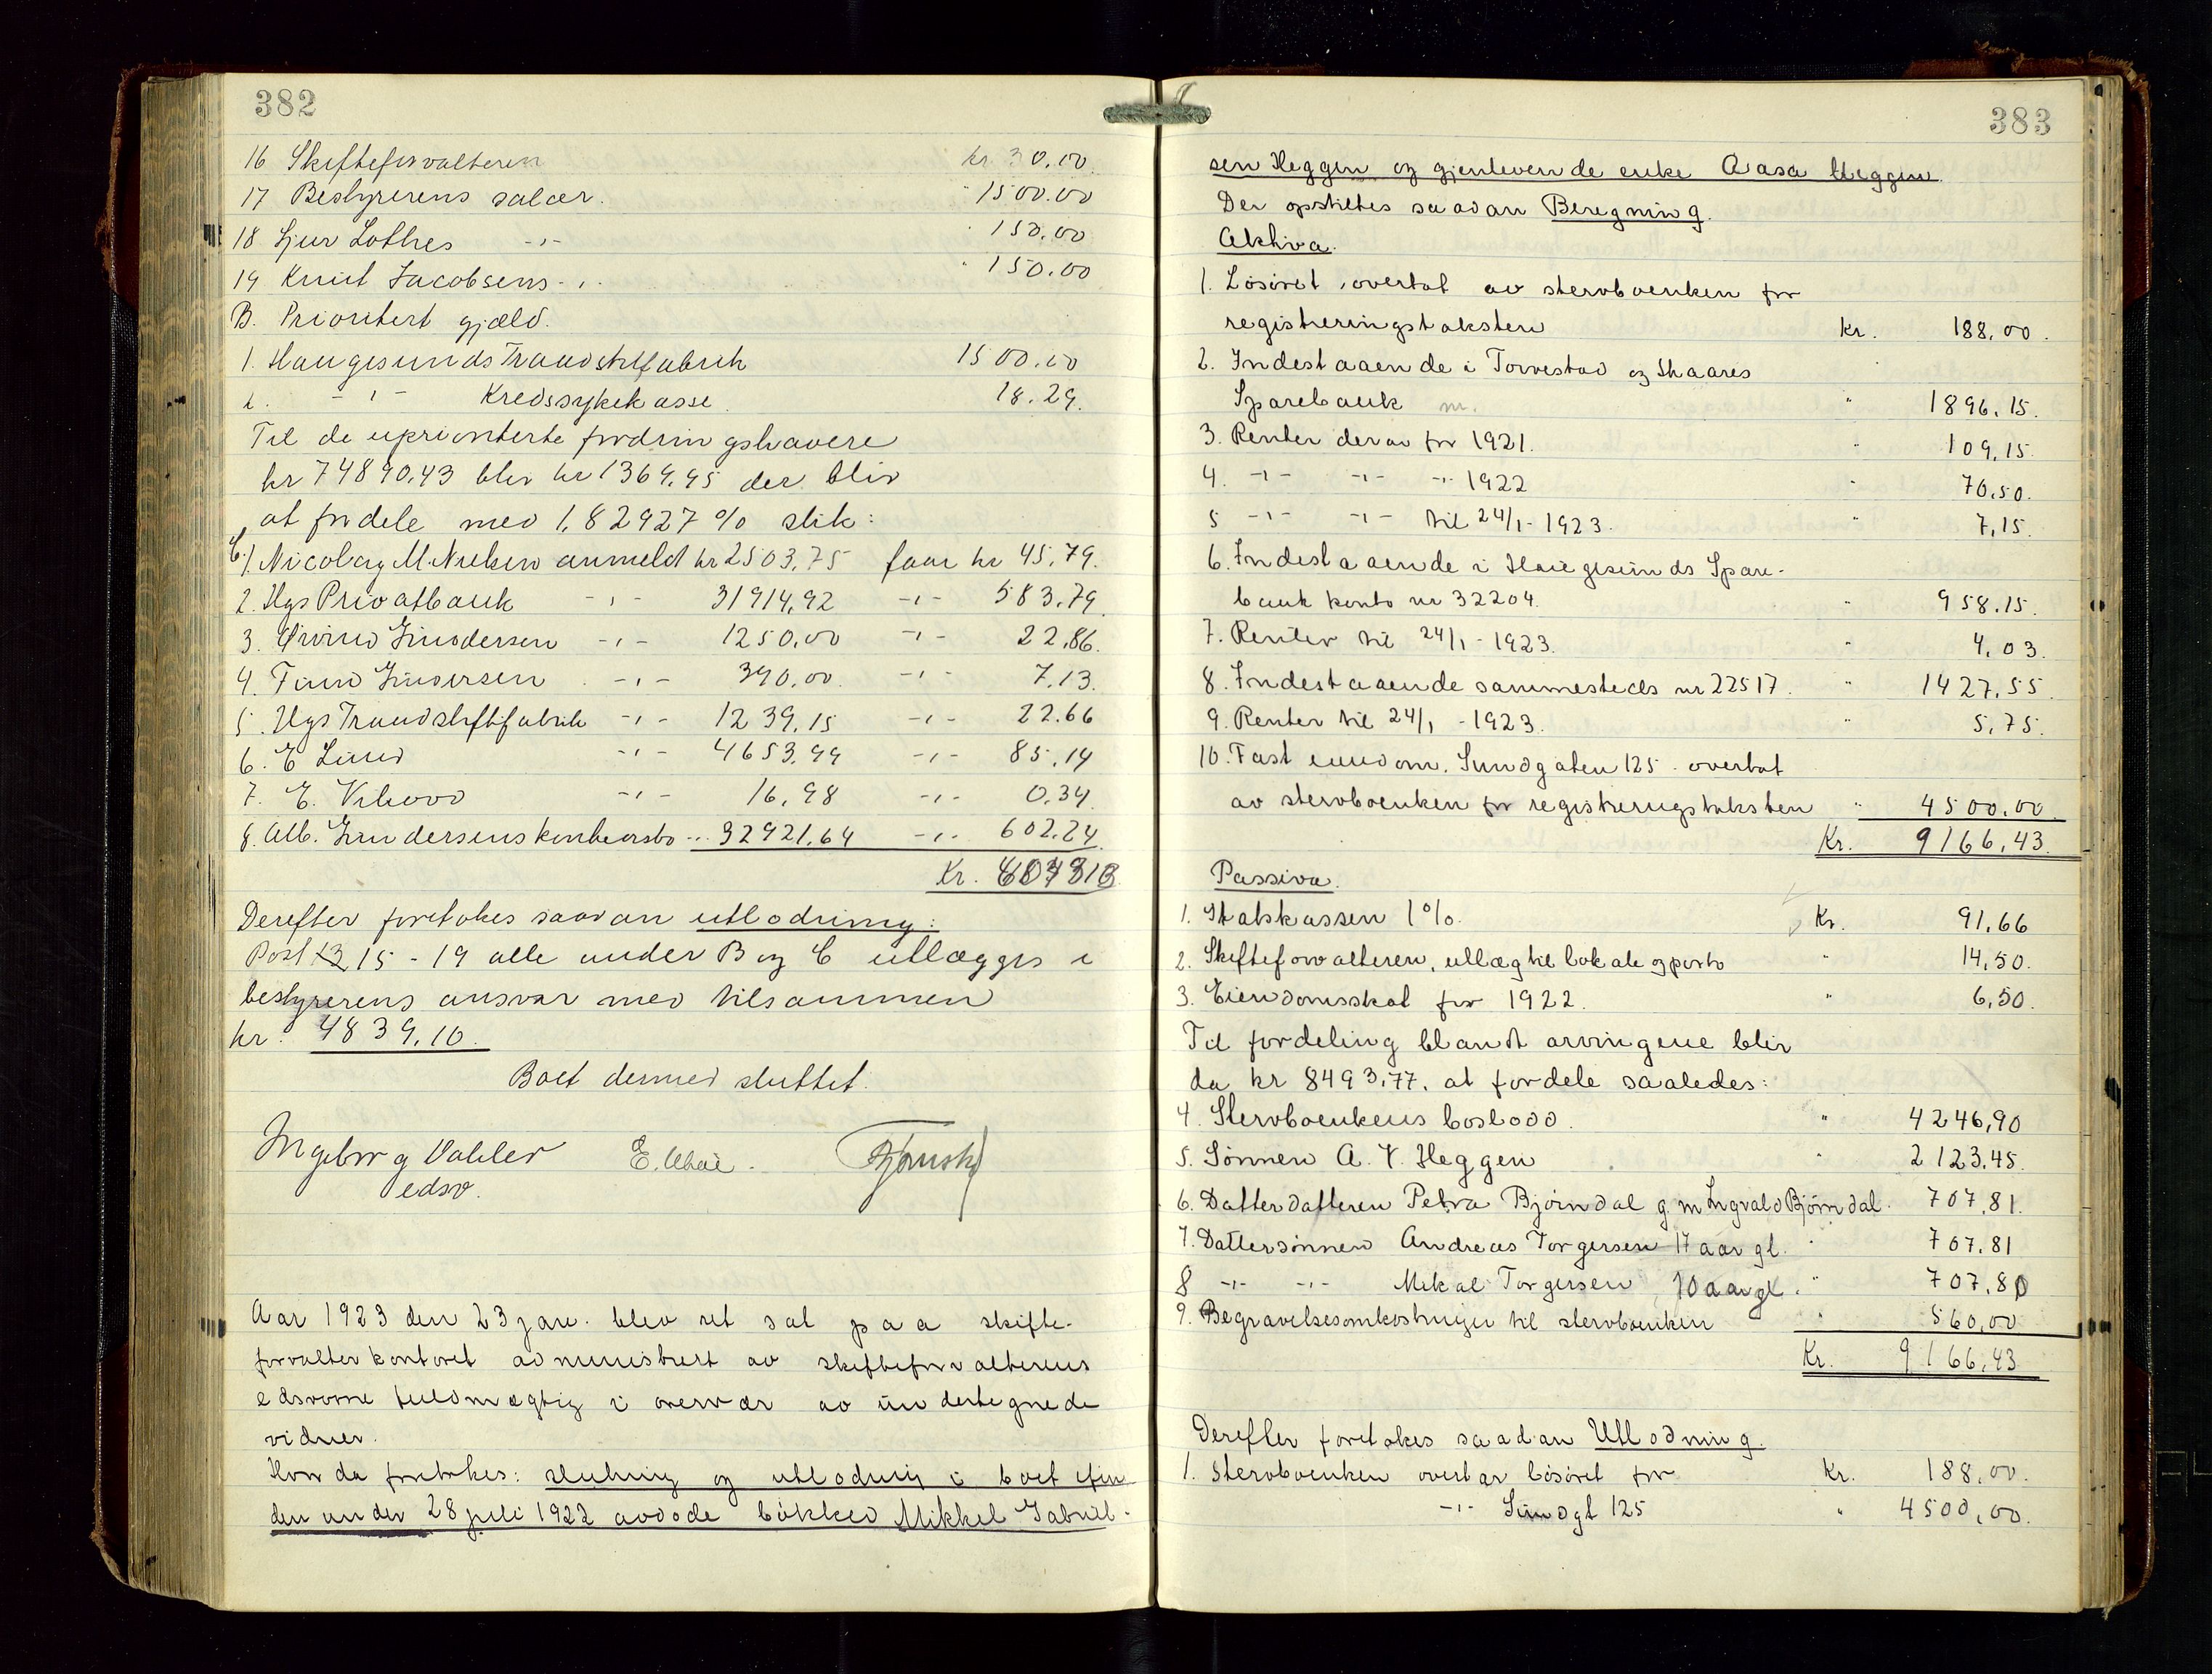 382
16 Skifteforvalteren kr. 30.00.
17 Bestyrerens salær. " 1500.00
18 Sjur Lothes -"- " 150.00
19 Knut Jacobsens -"- " 150.00
B. Prioritert gjæld.
1. Haugesunds Trandstiftfabrik 1500.00
2. -"- Kredssykekasse 18.29.
Til de uprioriterte fordringshavere
kr 74890.43 blir kr 1369.95 der blir
at fordele med 1,82927 % slik:
C. 1. Nicolay M. Nielsen anmeldt kr 2503,75 faar kr 45,79.
2. Hgs Privatbank -"- 31914,92 -"- 583.79
3. Øivind Gundersen -"- 1250,00 -"- 22,86.
4. Gundersen -"- 390,00. -"- 7.13.
5. Hgs Trandstiftfabrik -"- 1239,15 -"- 22.66
6. E Lund -"- 4653,99 -"- 85,14
7. E. -"- 16,98 -"- 0.34.
8. Alb. Gundersens konkursbo -"- 32921,64 -"- 602.24
Kr.
Derefter foretokes saadan utlodning:
Post 15 - 19 alle under B og C utlægges i
bestyrerens ansvar med tilsammen
kr. 4839,10.
Boet dermed sluttet.
Ingeborg Vahler E.
edsv.
Aar 1923 den 23 jan. blev ret sat paa skifte-
forvalterkontoret administrert av skifteforvalterens
edsvorne fuldmægtig i overvær av undertegnede
vidner.
Hvor da foretokes: slutning og utlodning i boet efter
den under 28 juli 1922 avdøde bøkker Mikkel Gabriel-
383
sen Heggen og gjenlevende enke Aasa Heggen.
Der opstilles saadan Beregning.
Aktiva.
1. Løsøret, overtat av stervboenken for
registreringstaksten Kr. 188,00.
2. Indestaaende i Torvestad og Skaares
Sparebank " 1896.15.
3. Renter derav for 1921. " 109,15.
4. -"- -"- -"- 1922 " 70,50.
5 -"- -"- til 24/1-1923. " 7,15.
6. Indestaaende i Haugesunds Spare-
bank konto nr 32204. " 958.15.
7. Renter til 24/1-1923. " 4,03.
8. Indestaaende sammesteds nr 22517. " 1427,55.
9. Renter til 24/1-1923. " 5,75.
10. Fast eiendom, Sundgaten 125. overtat
av stervboenken for registreringstaksten " 4500.00
Kr. 9166,43.
Passiva.
1. Statskassen 1%. Kr. 91,66
2. Skifteforvalteren, utlæg til lokale og porto " 14,50.
3. Eiendomsskat for 1922. " 6,50.
Til fordeling blandt arvingene blir
da kr 8493,77. at fordele saaledes:
4. Stervboenkens boslodd. " 4246,90
5. Sønnen A. V. Heggen " 2123,45.
6. Datterdatteren Petra Bjørndal g. m Ingvald Bjørndal. 707,81.
7. Dattersønnen Andreas Torgersen 17 aar gl. " 707,81
8 -"- -"- Mikal Torgersen, 10 aar gl. " 707,80
9. Begravelsesomkostninger til stervboenken " 560,00
Kr. 9166,43
Derefter foretokes saadan Utlodning.
1. Stervboenken overtar løsøret for Kr. 188,00.
-"- Sundgt 125 " 4500,00.